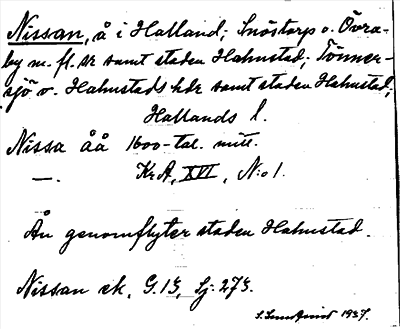 Nissan, å i Halland; Snöstorp o. Övra-
by m. fl. sr samt staden Halmstad; Tönner-
sjö o. Halmstads hdr samt staden Halmstad;
Hallands l.
Nissa åå 1600-tal. mitt.
—. KrA, XVI, N:o 1.
Ån genomflyter staden Halmstad.
Nissan ek. G. 13, Sj: 273.
1937.